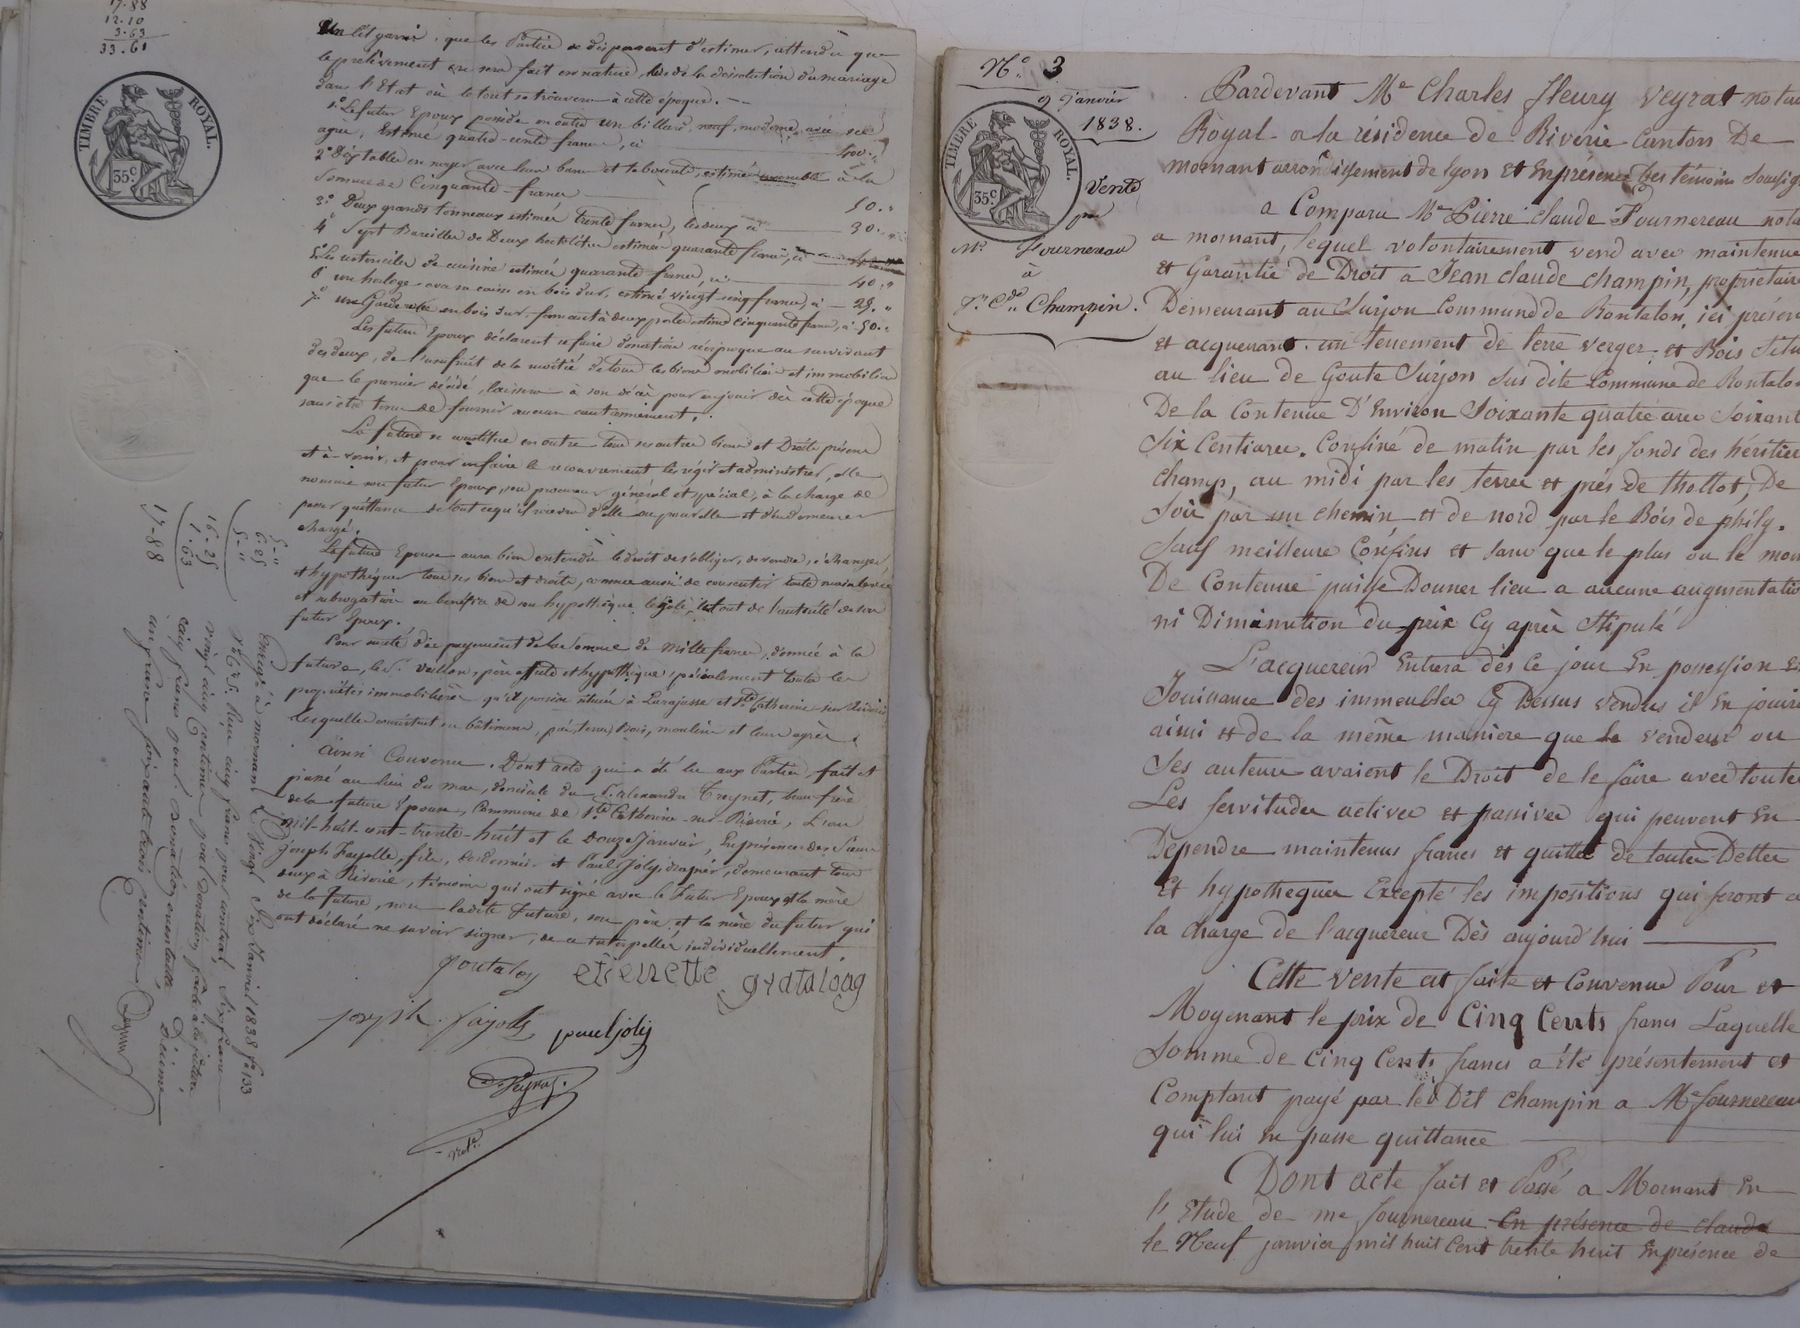 17.88
12.10
3.63
33.61
TIMBRE ROYAL.
35c
Un lit garni, que les Parties se dispensent d'estimer, attendu que
le prélèvement en sera fait en nature, lors de la dissolution du mariage
dans l'Etat où le tout se trouvera à cette époque.
1° Le futur Epoux possède en outre un billard neuf, moderne, avec ses
agrès, estimé quatre-cents francs, ci 400.
2° Dix tables en noyer avec leurs bancs et tabourets, estimés ensemble à la
Somme de Cinquante francs 50."
3° Deux grands tonneaux estimés trente francs, les deux, ci 30."
4° Sept Bareilles de Deux hectolitres estimées quarante francs, ci
5° Les ustensiles de cuisine estimés quarante francs, ci 40."
6° une horloge avec sa caisse en bois dur, estimé vingt cinq francs, ci 25."
7° une Garderobe en bois dur, fermant à deux portes estimé cinquante francs, ci 50."
Les futurs Epoux déclarent se faire donation réciproque au survivant
des deux, de l'usufruit de la moitié de tous les biens mobiliers et immobiliers
que le premier décédé, laissera à son décès pour en jouir dès cette époque
sans être tenu de fournir aucun cautionnement.
La future se constitue en outre tous ses autres biens et Droits présens
et à-venir, et pour en faire le recouvrement les régir et administrer, elle
nomme son futur Epoux, son procureur général et spécial, à la charge de
passer quittance de tout ce qu'il recevra d'elle ou pour elle et d'en demeurer
chargé.
La future Epouse aura bien entendu le droit de s'obliger, de vendre, échanger,
et hypothéquer tous ses biens et droits, comme aussi de consentir toute mainlevée
et subrogation au bénéfice de son hypothèque légale, le tout de l'autorité de son
futur Epoux.
Pour sureté du payement de la Somme de Mille francs, donnée à la
future, le Sr. Vaillon, père affecte et hypothèque spécialement toutes les
propriétés immobilières qu'il possède situées à Larajasse et Ste Catherine sur Riverie
lesquelles consistent en bâtimens, prés, terres, bois, moulins et leurs agrès.
Ainsi Convenu. Dont acte qui a été lu aux Parties, fait et
passé au lieu du mas, domicile du Sr. alexandre Treynet, beau-frère
de la future Epouse, Commune de Ste Catherine-sur-Riverie, L'an
Mil-huit-cent-trente-huit et le Douze Janvier, En présence des Sieurs
Joseph Fayolle, fils, Cordonnier et Paul Joly, drapier, demeurant tous
deux à Riverie, témoins qui ont signé avec le Futur Epoux et la mère
de la future, non ladite Future, son père et la mère du futur qui
ont déclaré ne savoir signer, de ce interpellés individuellement.
etienette grataloug
joseph fayolle pauljoly
Veyrat.
Not.
5-"
6-25
5-"
16-25
1-63
17-88
Enregé à mornant le Vingt Six Janvier 1838 f° 133
Reçu cinq francs pour contrat, Six francs
vingt cinq centimes pour donation faite à la future,
cinq francs pour donation éventuelle, Décime
un franc soixante trois centimes
N° 3
9 Janvier
1838.
TIMBRE ROYAL.
35c
Vente
par
Me. Fournereau
à
Jn. Cde. Champin.
Pardevant Me Charles fleury veyrat notai
Royal a la résidence de Riverie Canton De
mornant arrondissement de lyon et En présence Des témoins soussig
a Comparu Me Pierre claude Fournereau nota
a mornant, lequel volontairement vend avec maintenue
et Garantie de Droit a Jean claude champin, propriétaire
Demeurant au Surjon Commune de Rontalon, ici présen
et acquerant. un tenement de terre verger, et Bois Situ
au lieu de Goute Surjon sus dite Commune de Rontalon
De la Contenue D'Environ Soixante quatre ares Soixant
six Centiares. Confiné de matin par les fonds des héritie
champ, au midi par les terres et prés de thollot, De
Soir par un chemin et de nord par le Bois de philip.
Sauf meilleurs Confins et sans que le plus ou le moi
De Contenue puisse Donner lieu a aucune augmentatio
ni Diminution du prix Cy après Stipulé
L'acquereur Entrera dès Ce jour En possession E
Jouissance des immeubles Cy Dessus vendus il En jouira
ainsi et de la même manière que le vendeur ou
Ses auteurs avaient le Droit de le faire avec toute
Les servitudes actives et passives qui peuvent En
Dépendre maintenus francs et quittes de toutes Dettes
Et hypotheques Excepté les impositions qui seront a
la charge de l'acquereur Dès aujourd'hui
Cette vente est faite et Convenue Pour et
Moyenant le prix de Cinq Cents francs Laquelle
Somme de Cinq Cents francs a été présentement et
Comptant payé par le Dit Champin a Me fournereau
qui lui en passe quittance
Dont acte fait et Passé a Mornant En
l'Etude de me fournereau En présence de claude
le Neuf janvier mil huit Cent trente huit En présence de